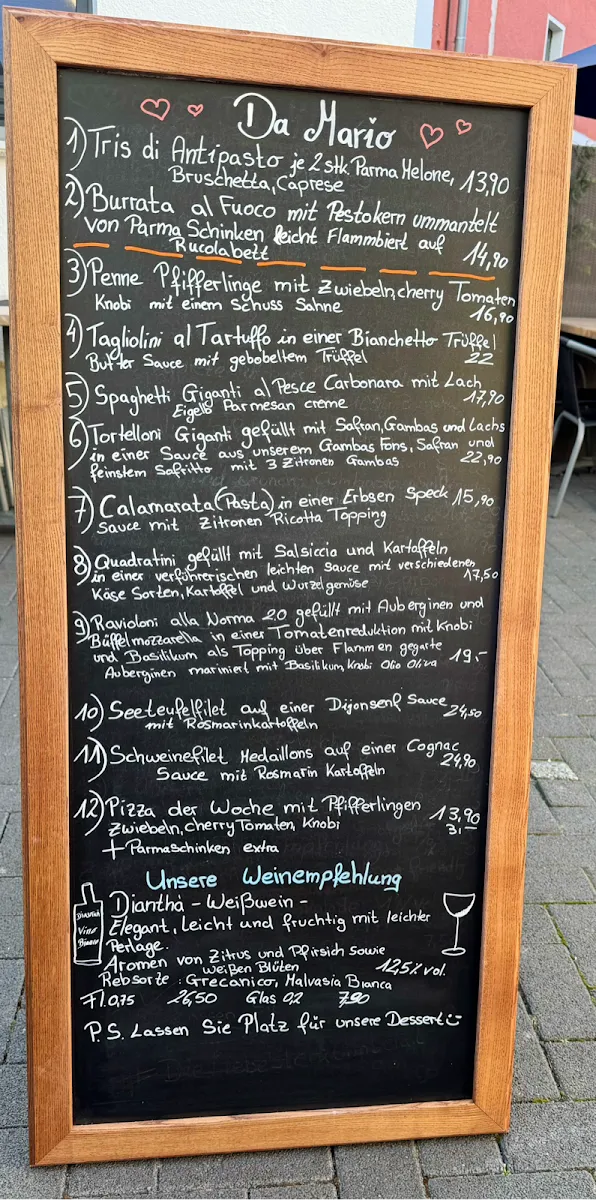 Da Mario
1) Tris di Antipasto je 2 stk. Parma Melone,
Bruschetta, Caprese 13,90
2) Burrata al Fuoco mit Pestokern ummantelt
von Parma Schinken leicht Flammbiert auf 14,90
Rucolabett
3) Penne Pfifferlinge mit Zwiebeln, cherry Tomaten
Knobi mit einem Schuss Sahne 16,90
4) Tagliolini al Tartuffo in einer Bianchetto Trüffel
Butter Sauce mit gehobeltem Trüffel 22
5) Spaghetti Giganti al Pesce Carbonara mit Lach
Eigelb Parmesan creme 17,90
6) Tortelloni Giganti gefüllt mit Safran, Gambas und Lachs
in einer Sauce aus unserem Gambas Fons, Safran und
feinstem Sofritto mit 3 Zitronen Gambas 22,90
7) Calamarata (Pasta) in einer Erbsen Speck 15,90
Sauce mit Zitronen Ricotta Topping
8) Quadratini gefüllt mit Salsiccia und Kartoffeln
in einer verführerischen leichten Sauce mit verschiedenen
Käse Sorten, Kartoffel und Wurzelgemüse 17,50
9) Ravioloni alla Norma 2.0 gefüllt mit Auberginen und
Büffelmozzarella in einer Tomatenreduktion mit Knobi
und Basilikum als Topping über Flammen gegarte 19.-
Auberginen mariniert mit Basilikum, Knobi Olio Oliva
10) Seeteufelfilet auf einer Dijonsenf Sauce 24,50
mit Rosmarinkartoffeln
11) Schweinefilet Medaillons auf einer Cognac
Sauce mit Rosmarin Kartoffeln 24,90
12) Pizza der Woche mit Pfifferlingen 13,90
Zwiebeln, cherry Tomaten, Knobi 3,-
+ Parmaschinken extra
Unsere Weinempfehlung
Diantha - Weißwein -
Elegant, leicht und fruchtig mit leichter
Perlage.
Aromen von Zitrus und Pfirsich sowie
weißen Blüten 12,5% vol.
Rebsorte : Grecanico, Malvasia Bianca
Fl. 0,75 26,50 Glas 0,2 7,90
P.S. Lassen Sie Platz für unsere Dessert
Vino
Bianco